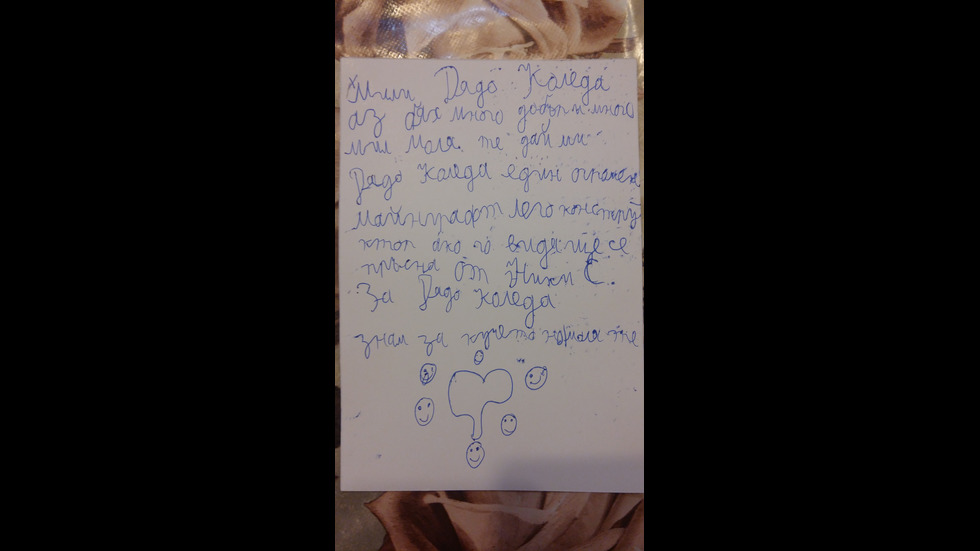 Мили Дядо Коледа
аз бях много добър и много
мил моля те дай ми
Дядо Коледа един огромен
майнкрафт лего констру
ктор ако го видя ще се
пръсна от Ники С.
За Дядо Коледа
знам за кучето но моля те